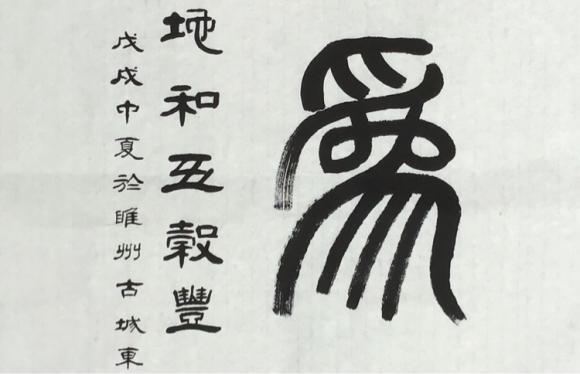 為
地和五穀豐
戊戌中夏於睢州古城東